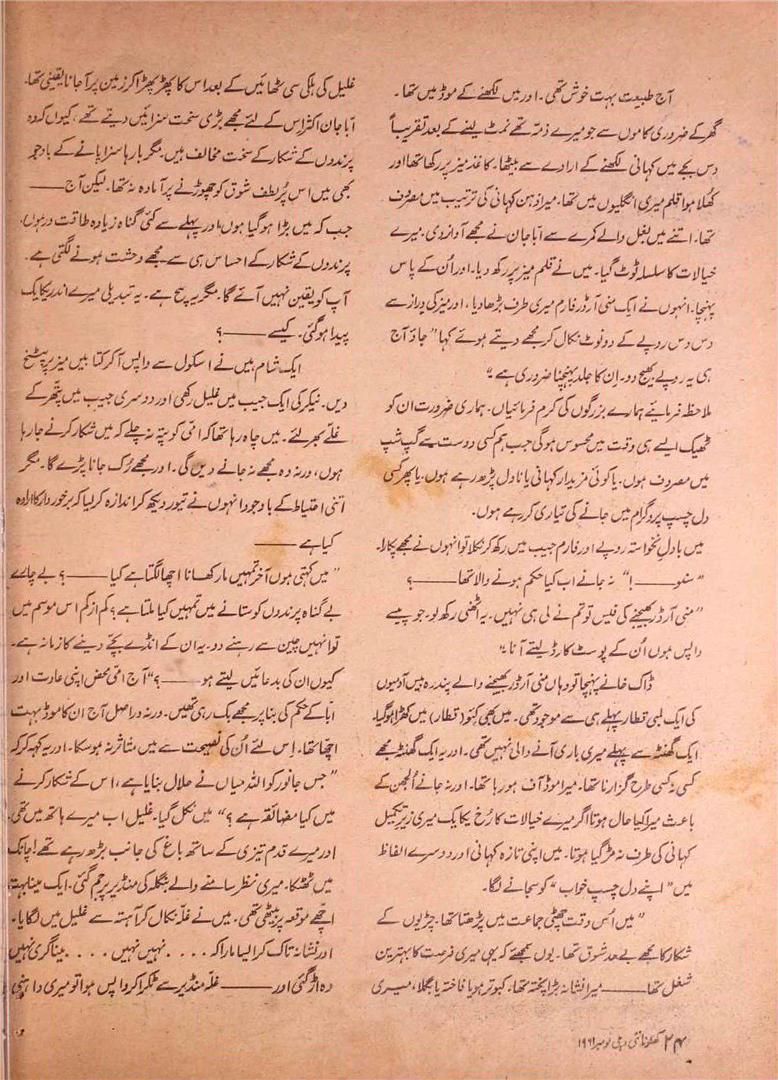 آج طبیعت بہت خوش تھی۔ اور میں لکھنے کے موڈ میں تھا۔
گھر کے ضروری کاموں سے جو میرے ذمّہ تھے نمٹ لینے کے بعد تقریباً
دس بجے میں کہانی لکھنے کے ارادے سے بیٹھا۔ کاغذ میز پر رکھا تھا اور
کھُلا ہوا قلم میری انگلیوں میں تھا۔ میرا ذہن کہانی کی ترتیب میں مصروف
تھا۔ اتنے میں بغل والے کمرے سے ابّا جان نے مجھے آواز دی۔ میرے
خیالات کا سلسلہ ٹوٹ گیا۔ میں نے قلم میز پر رکھ دیا۔ اور اُن کے پاس
پہنچا۔ انہوں نے ایک منی آرڈر فارم میری طرف بڑھا دیا، اور میز کی دراز سے
دس دس روپے کے دو نوٹ نکال کر مجھے دیتے ہوئے کہا "جاؤ آج
ہی یہ روپے بھیج دو۔ اِن کا جلد پہنچنا ضروری ہے۔"
ملاحظہ فرمائیے ہمارے بزرگوں کی کرم فرمائیاں۔ ہماری ضرورت ان کو
ٹھیک ایسے ہی وقت میں محسوس ہوگی جب ہم کسی دوست سے گپ شپ
میں مصروف ہوں۔ یا کوئی مزیدار کہانی یا ناول پڑھ رہے ہوں۔ یا پھر کسی
دل چسپ پروگرام میں جانے کی تیاری کر رہے ہوں۔
میں بادلِ نخواستہ روپے اور فارم جیب میں رکھ کر نکلا تو انہوں نے مجھے پکارا۔
"سنو——!" نہ جانے اب کیا حکم ہونے والا تھا——؟
"منی آرڈر بھیجنے کی فیس تو تم نے لی ہی نہیں۔ یہ اٹھنی رکھ لو۔ جو پیسے
واپس ہوں اُن کے پوسٹ کارڈ لیتے آنا۔"
ڈاک خانے پہنچا تو وہاں منی آرڈر بھیجنے والے پندرہ بیس آدمیوں
کی ایک لمبی قطار پہلے ہی سے موجود تھی۔ میں بھی کیو (قطار) میں کھڑا ہو گیا۔
ایک گھنٹے سے پہلے میری باری آنے والی نہیں تھی۔ اور یہ ایک گھنٹہ مجھے
کسی نہ کسی طرح گزارنا تھا۔ میرا موڈ آف ہو رہا تھا۔ اور نہ جانے الجھن کے
باعث میرا کیا حال ہوتا اگر میرے خیالات کا رُخ یکایک میری زیرِ تکمیل
کہانی کی طرف نہ مڑ گیا ہوتا۔ میں اپنی تازہ کہانی اور دوسرے الفاظ
میں "اپنے دل چسپ خواب" کو سجانے لگا۔
"میں اُس وقت چھٹی جماعت میں پڑھتا تھا۔ چڑیوں کے
شکار کا مجھے بے حد شوق تھا۔ یوں سمجھئے کہ یہی میری فرصت کا بہترین
شغل تھا—— میرا نشانہ بڑا پختہ تھا۔ کبوتر ہو یا فاختہ یا بگلا، میری
غلیل کی ہلکی سی سٹھائیں کے بعد اس کا پھڑپھڑا کر زمین پر آ جانا یقینی تھا۔
ابّا جان اکثر اِس کے لئے مجھے بڑی سخت سزائیں دیتے تھے، کیوں کہ وہ
پرندوں کے شکار کے سخت مخالف ہیں۔ مگر بارہا سزا پانے کے باوجود
بھی میں اس پُر لطف شوق کو چھوڑنے پر آمادہ نہ تھا۔ لیکن آج——
جب کہ میں بڑا ہو گیا ہوں، اور پہلے سے کئی گناہ زیادہ طاقت ور ہوں،
پرندوں کے شکار کے احساس ہی سے۔ مجھے وحشت ہونے لگتی ہے۔
آپ کو یقین نہیں آئے گا۔ مگر یہ سچ ہے۔ یہ تبدیلی میرے اندر یکایک
پیدا ہو گئی۔ کیسے——؟
ایک شام میں نے اسکول سے واپس آ کر کتابیں میز پر پٹخ
دیں۔ نیکر کی ایک جیب میں غلیل رکھی اور دوسری جیب میں پتھر کے
غلّے بھر لئے۔ میں چاہ رہا تھا کہ اتّی کو پتہ نہ چلے کہ میں شکار کرنے جا رہا
ہوں، ورنہ وہ مجھے نہ جانے دیں گی۔ اور مجھے رُک جانا پڑے گا۔ مگر
اتنی احتیاط کے باوجود انہوں نے تیور دیکھ کر اندازہ کر لیا کہ برخوردار کا ارادہ
کیا ہے——
"میں کہتی ہوں آخر تمہیں مار کھانا اچھا لگتا ہے کیا——؟ بے چارے
بے گناہ پرندوں کو ستانے میں تمہیں کیا ملتا ہے؟ کم از کم اس موسم میں
تو انہیں چین سے رہنے دو۔ یہ ان کے انڈے بچّے دینے کا زمانہ ہے۔
کیوں ان کی بد عائیں لیتے ہو——؟" آج امّی محض اپنی عادت اور
ابّا کے حکم کی بنا پر مجھے بک رہی تھیں۔ ورنہ دراصل آج ان کا موڈ بہت
اچھّا تھا۔ اِس لئے اُن کی نصیحت سے میں متاثر نہ ہو سکا۔ اور یہ کہہ کر کہ
"جس جانور کو اللہ میاں نے حلال بنایا ہے، اس کے شکار کرنے
میں کیا مضائقہ ہے؟" میں نکل گیا۔ غلیل اب میرے ہاتھ میں تھی۔
اور میرے قدم تیزی کے ساتھ باغ کی جانب بڑھ رہے تھے! اچانک
میں ٹھٹکا۔ میری نظر سامنے والے بنگلہ کی منڈیر پر جم گئی۔ ایک مینا بہت
اچھّے موقعہ پر بیٹھی تھی۔ میں نے غلّہ نکال کر آہستہ سے غلیل میں لگایا۔
اور نشانہ تاک کر ایسا مارا کہ .... نہیں نہیں .... مینا گری نہیں
وہ اڑ گئی اور—— غلّہ منڈیر سے ٹکرا کر واپس ہوا تو میری داہنی
۲۴ کھلونا نئی دہلی نومبر ۱۹۶۱